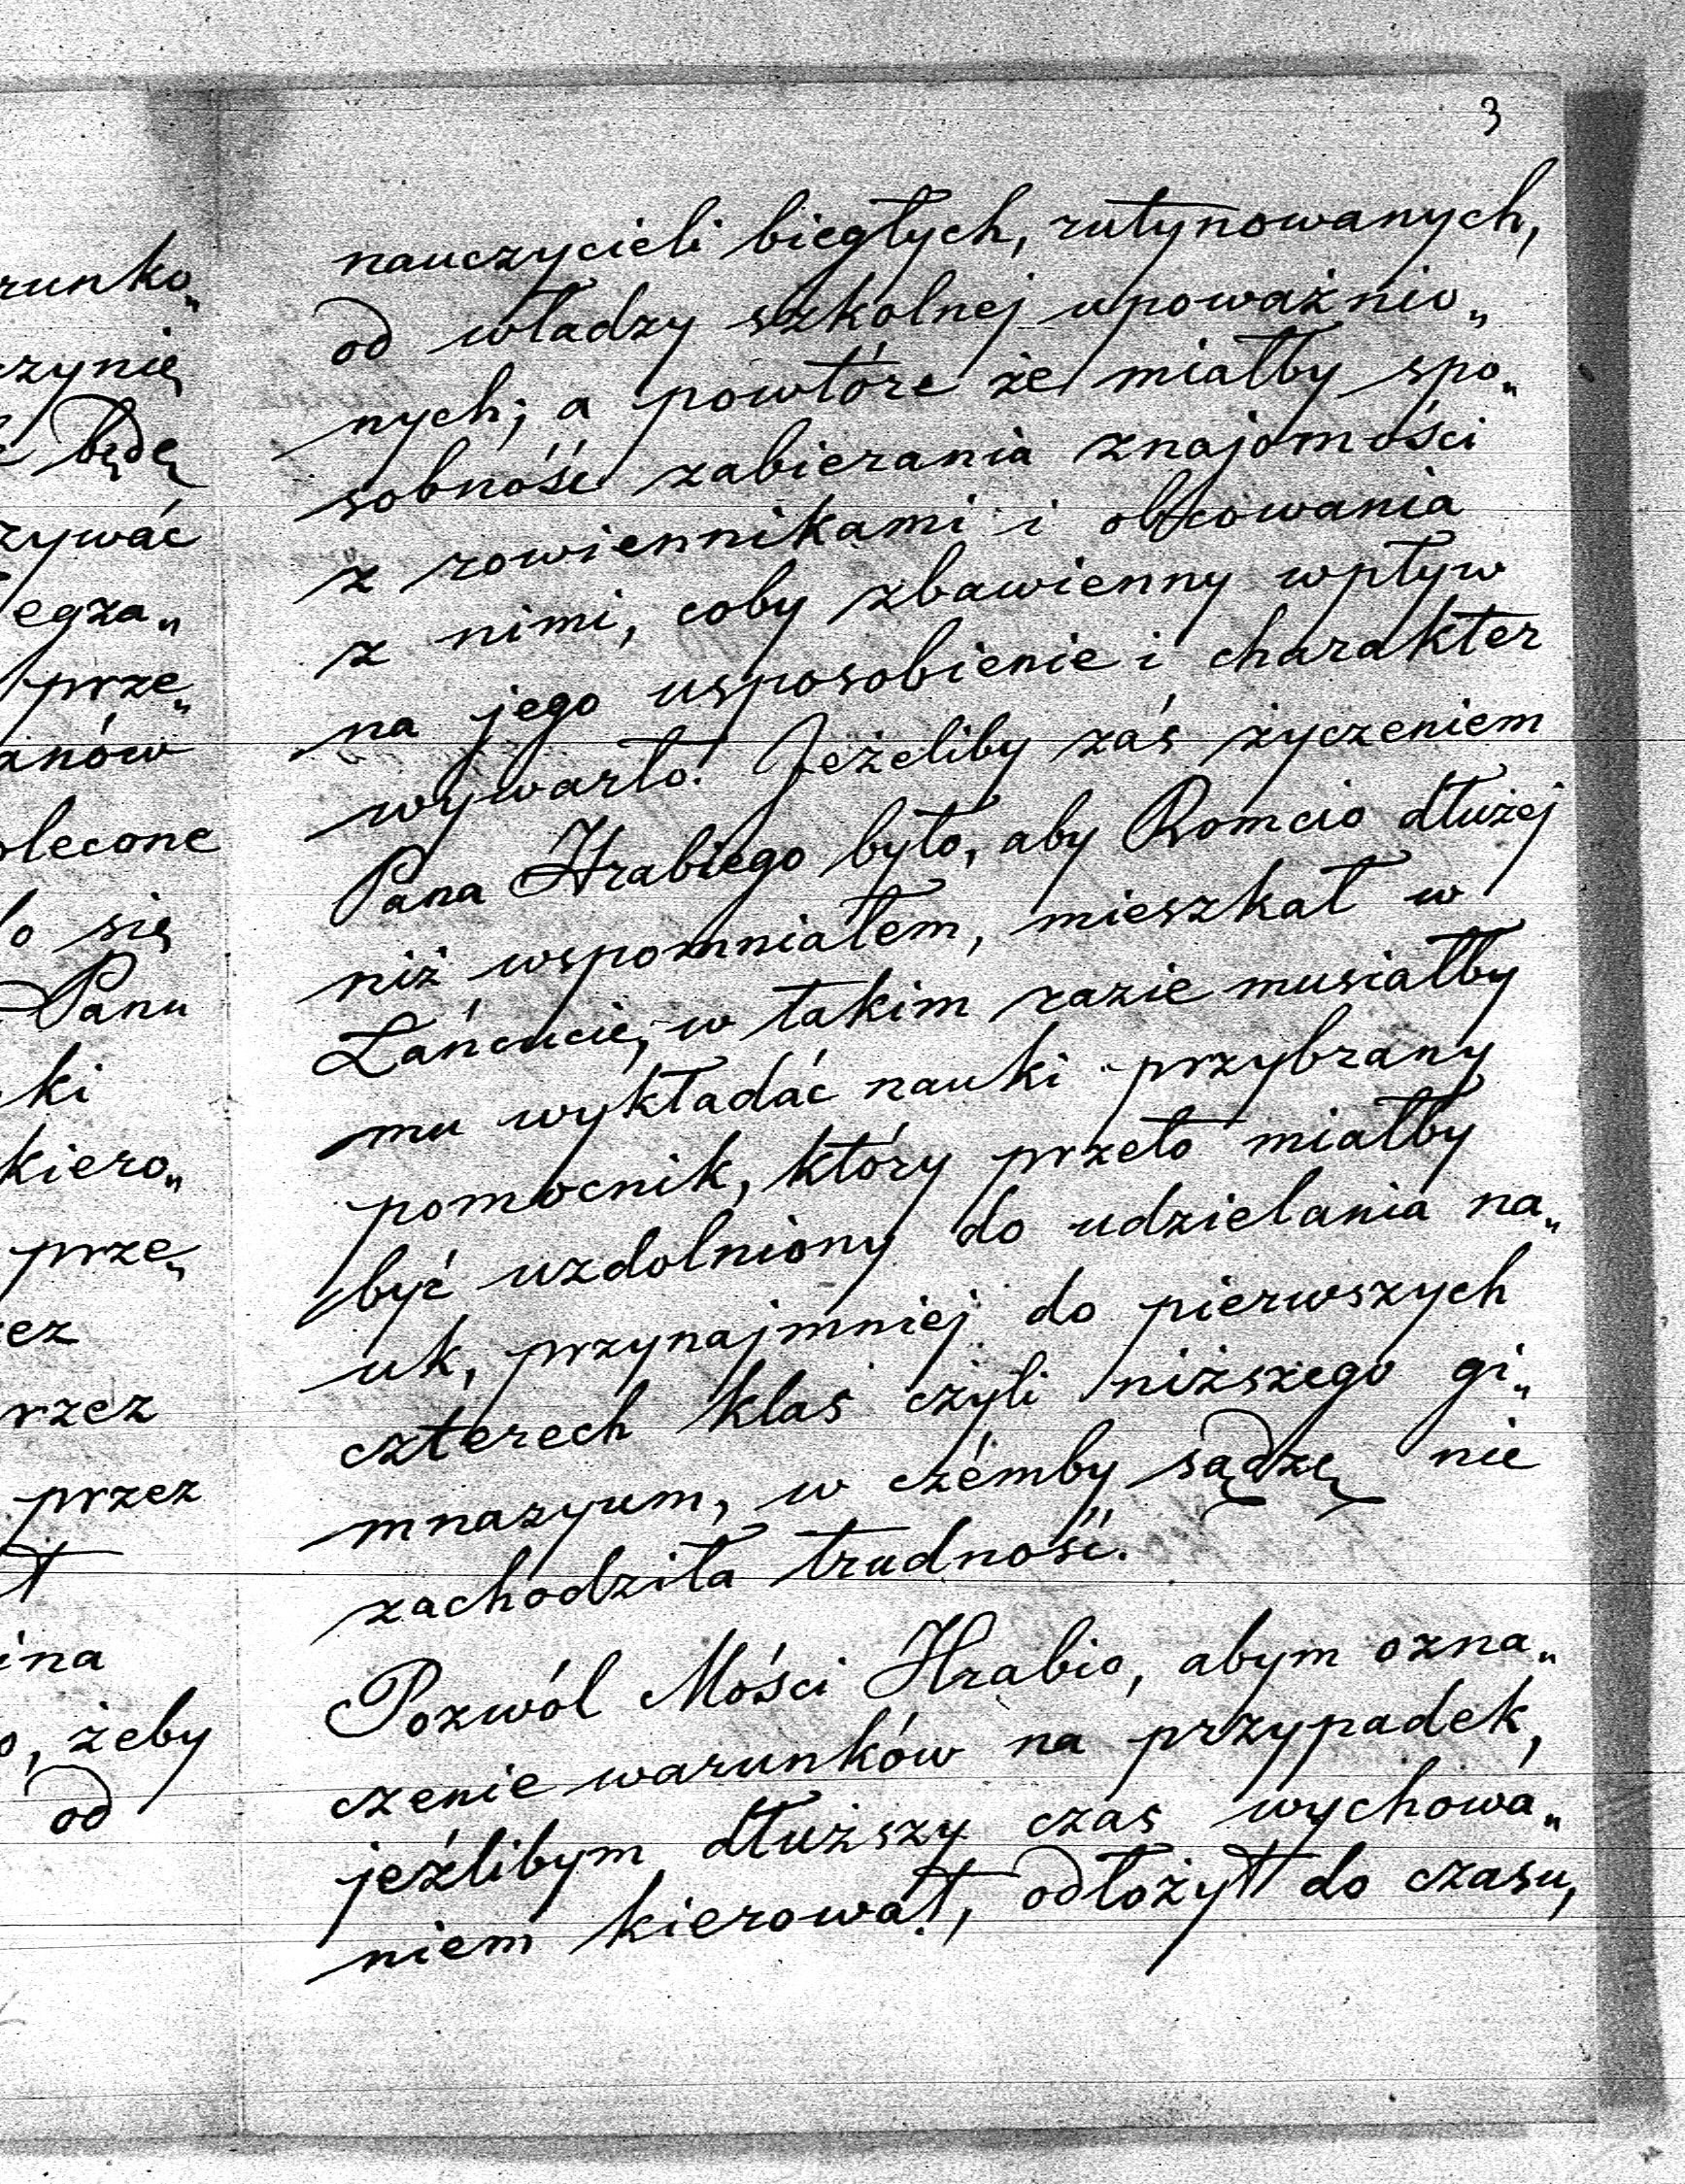 3
nauczycieli biegłych, rutynowanych,
od władzy szkolnej upoważnio„
nych; a powtóre że miałby spo„
sobność zabierania znajomości
z rowiennikami i obcowania
z nimi, coby zbawienny wpływ
na jego usposobienie i charakter
wywarło. Jeżeliby zaś życzeniem
Pana Hrabiego było, aby Romcio dłużej
niż wspomniałem, mieszkał w
Łańcucie, w takim razie musiałby
mu wykładać nauki przybrany
pomocnik, który przeto miałby
być uzdolniony do udzielania na„
uk, przynajmniej do pierwszych
czterech klas czyli niższego gi„
mnazyum, w czémby sądzę nie
zachodziła trudność.
Pozwól Mości Hrabio, abym ozna„
czenie warunków na przypadek,
jeźlibym dłuższy czas wychowa„
niem kierował, odłożył do czasu,
runko„
czynię
będę
zywać
egza„
prze„
anów
olecone
ło się
Panu
ki
kiero„
prze„
ez
rzez
przez
ina
o, żeby
od